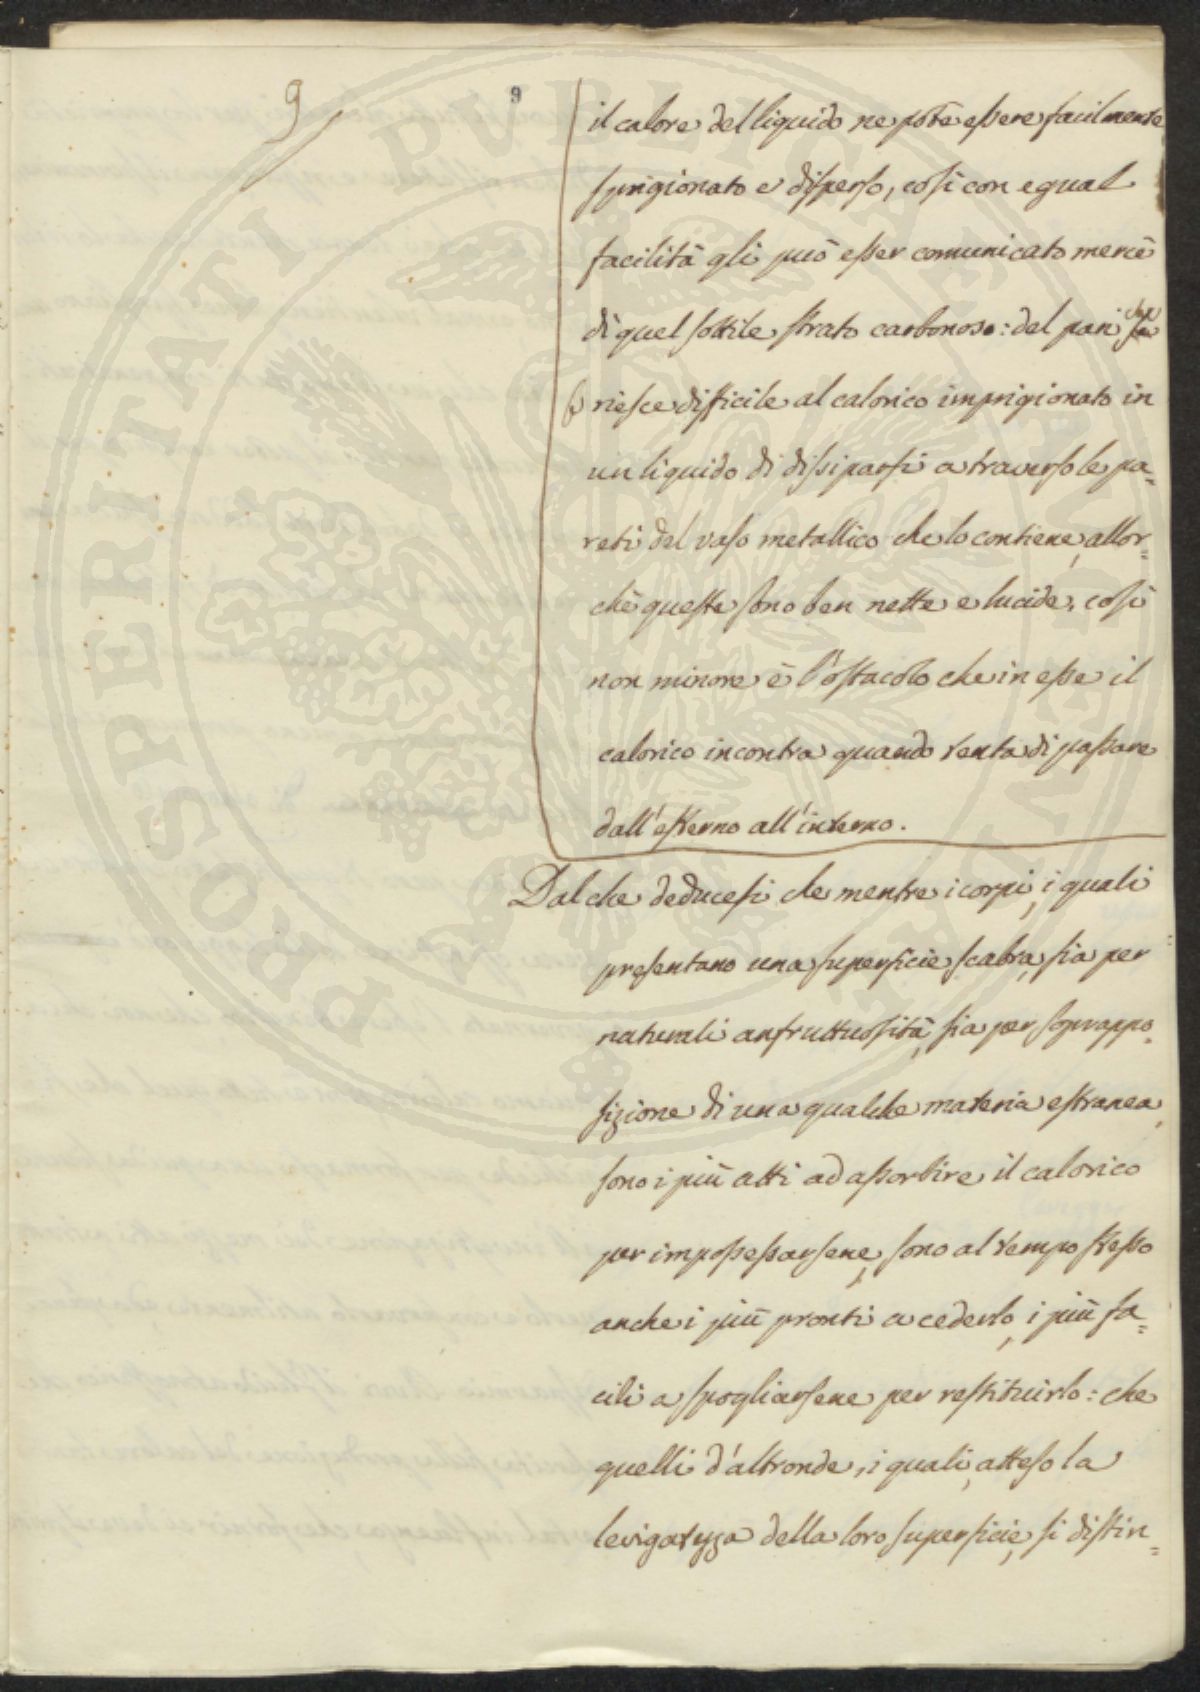 9
9
il calore del liquido ne potè essere facilmente
sprigionato e disperso, così con egual
facilità gli può esser comunicato mercè
di quel sottile strato carbonoso: del pari che
riesce difficile al calorico imprigionato in
un liquido di dissiparsi a traverso le pa=
reti del vaso metallico che lo contiene, allor=
chè queste sono ben nette e lucide, così
non minore è l'ostacolo che in esse il
calorico incontra quando tenta di passare
dall'esterno all'interno.
Dal che deducesi che mentre i corpi, i quali
presentano una superficie scabra, sia per
naturali anfruttuosità, sia per sovrappo=
sizione di una qualche materia estranea,
sono i più atti ad assorbire il calorico
per impossessarsene, sono al tempo stesso
anche i più pronti a cederlo, i più fa=
cili a spogliarsene per restituirlo: che
quelli d'altronde, i quali, atteso la
levigatezza della loro superficie, si distin=
PROSPERITATI PUBLICAE AVGENDAE